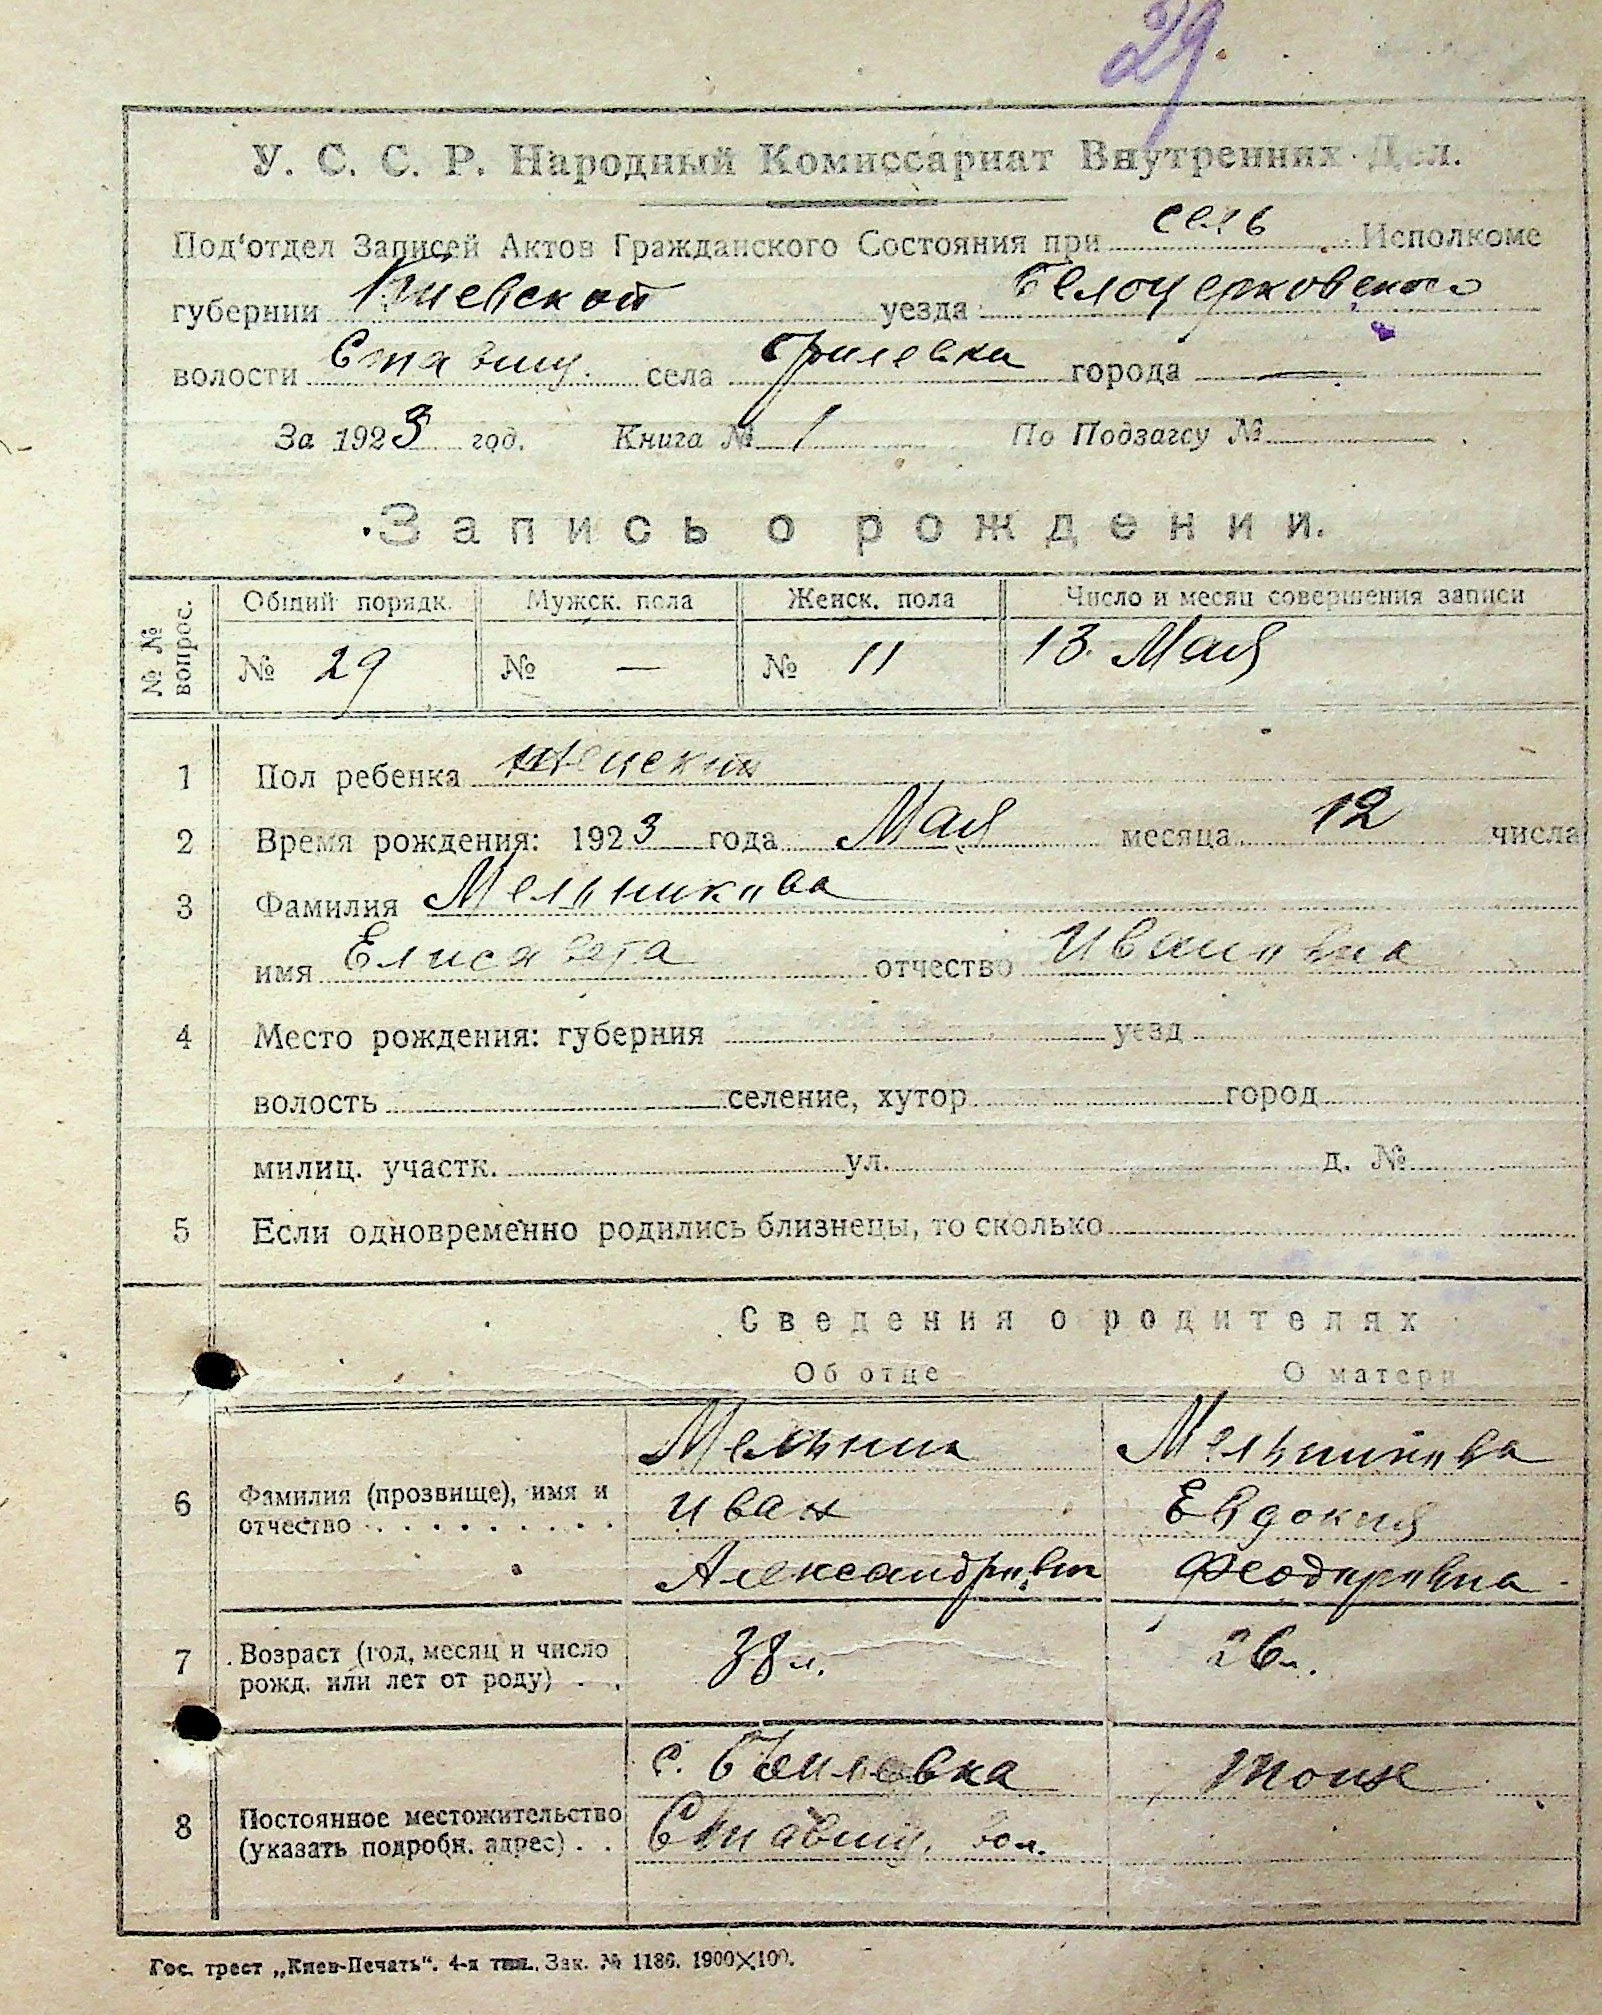 29.
У. С. С. Р. Народный Комиссариат Внутренних Дел.
Под'отдел Записей Актов Гражданского Состояния при сель Исполкоме
губернии Киевской уезда Белоцерковского
волости Ставищ. села города —
За 1923 год. Книга № 1 По Подзагсу №
Запись о рождении.
№ № вопрос. Общий порядк. Мужск. пола Женск. пола Число и месяц совершения записи
№ 29 № — № 11 13. Мая
1 Пол ребенка женский
2 Время рождения: 1923 года Мая месяца 12 числа
3 Фамилия Мельникова
имя Елисавета отчество Ивановна
4 Место рождения: губерния уезд
волость селение, хутор город
милиц. участк. ул. д. №
5 Если одновременно родились близнецы, то сколько
Сведения о родителях
Об отце О матери
Мельник Мельникова
6 Фамилия (прозвище), имя и отчество Иван Евдокия
Александрович Феодоровна
7 Возраст (год, месяц и число рожд. или лет от роду) 38 л. 26 л.
с. тоже
8 Постоянное местожительство (указать подробн. адрес) Ставищ. вол.
Гос. трест „Киев-Печать“. 4-я тип. Зак. № 1186. 1900×100.